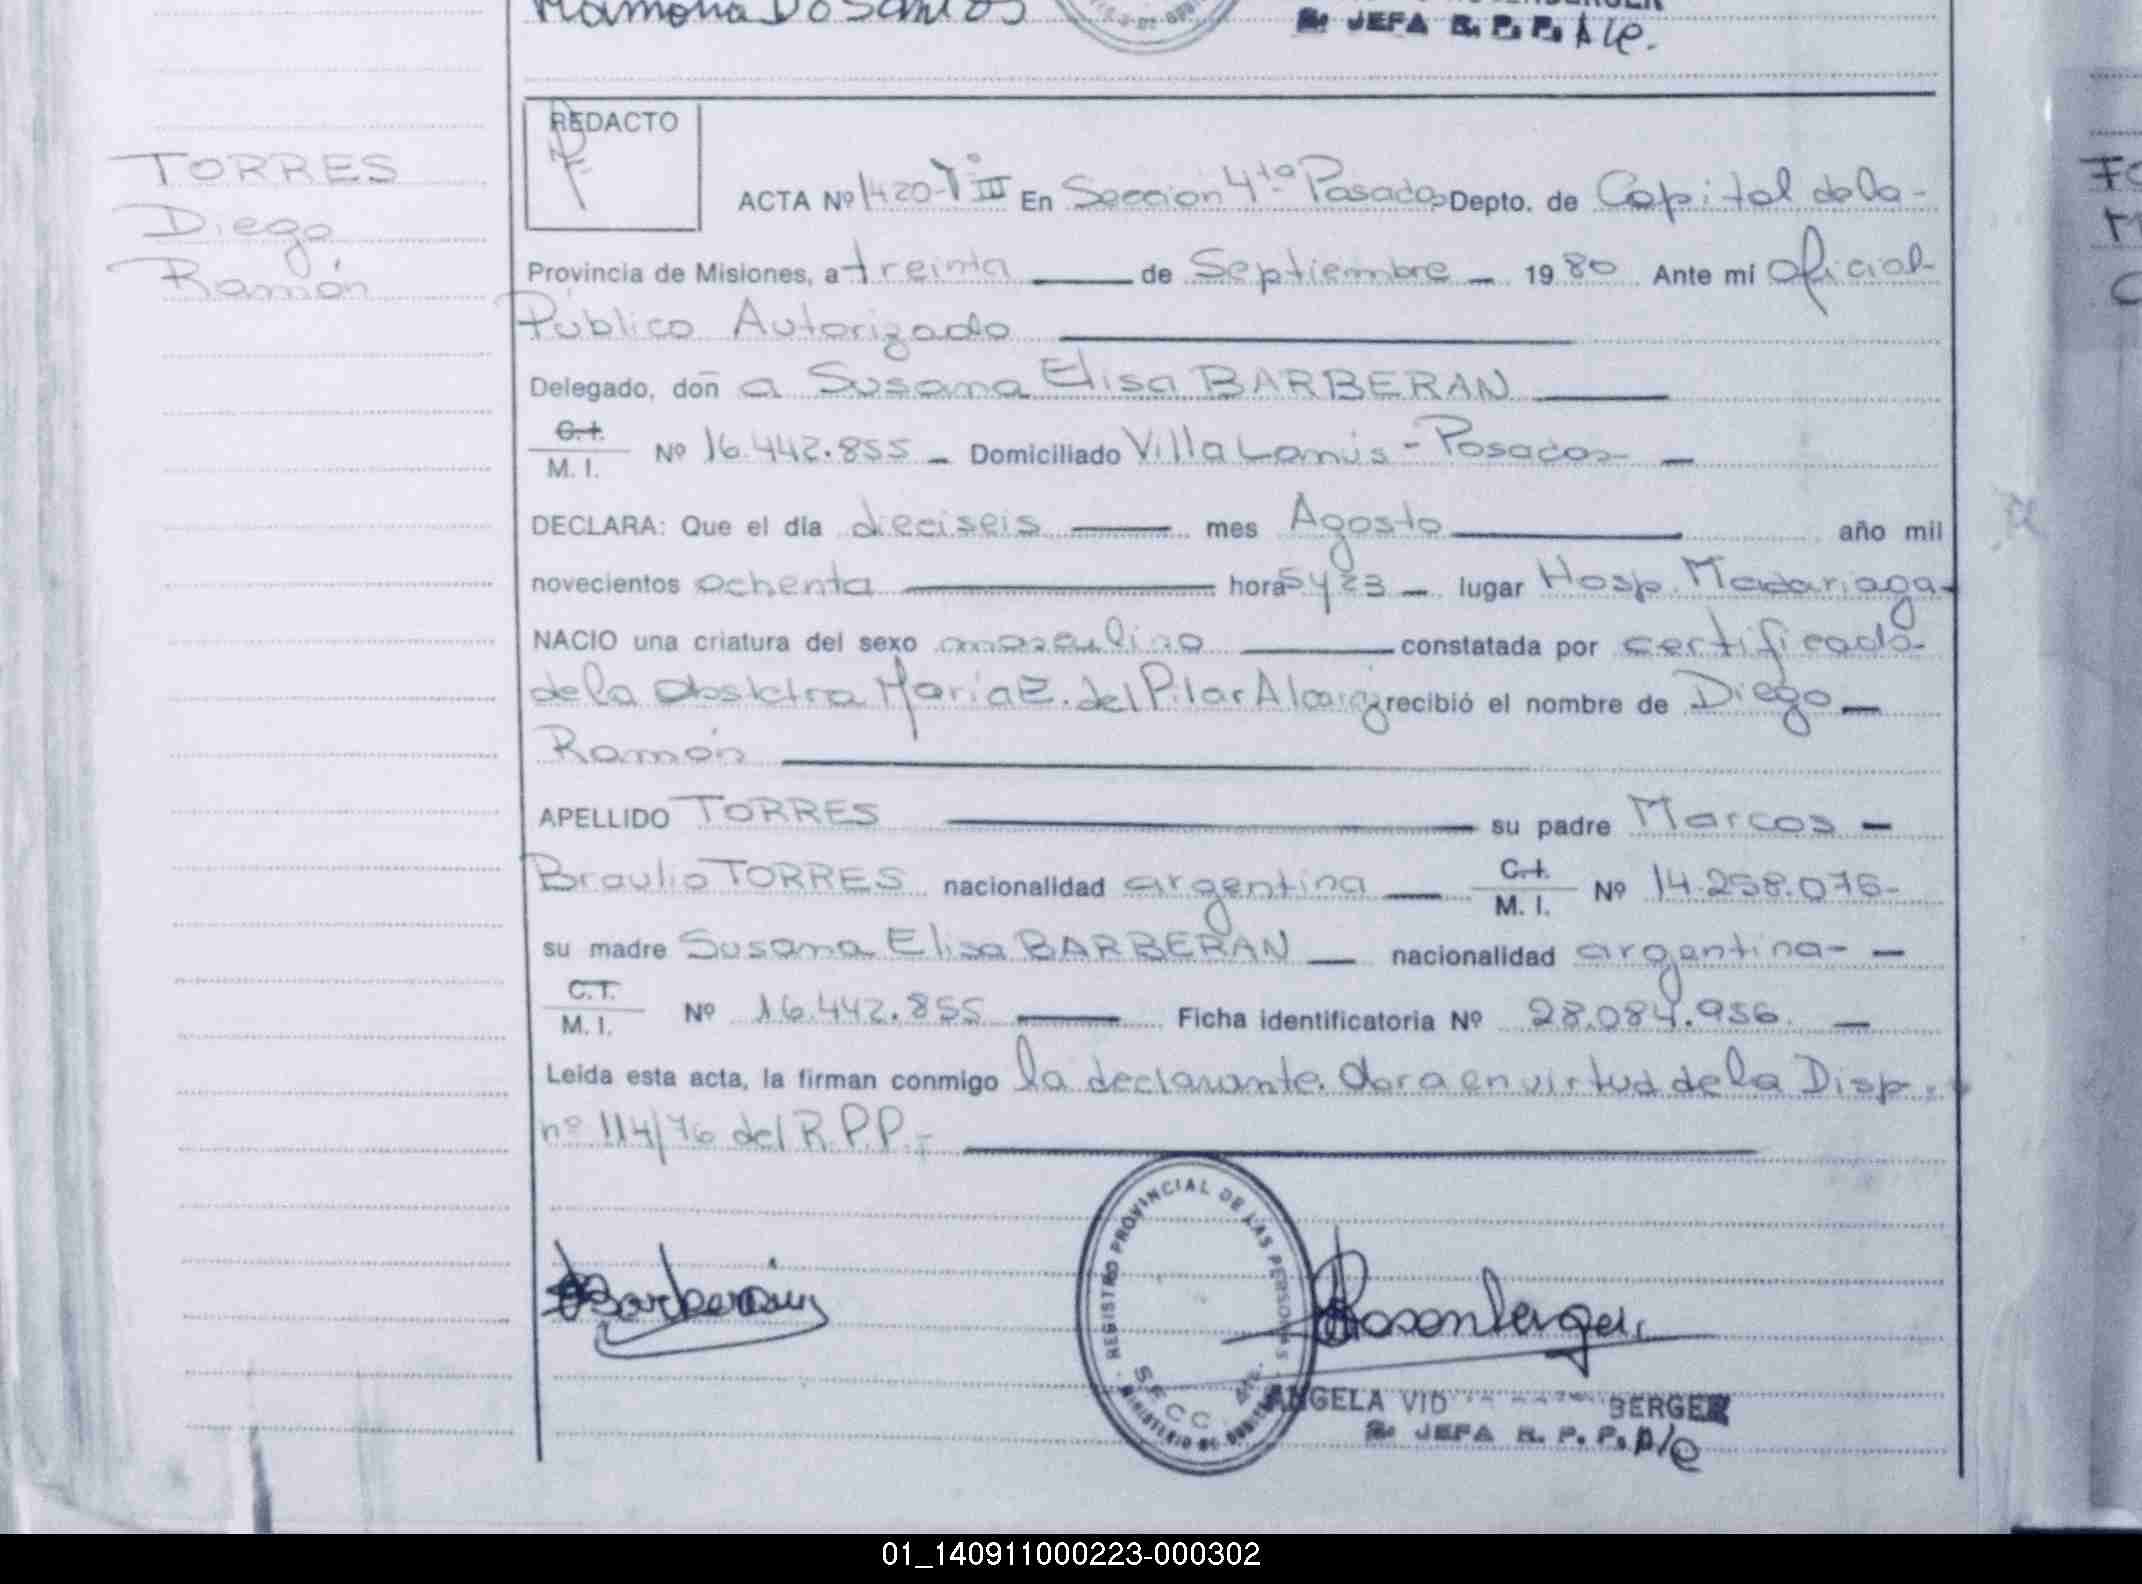 Ramona Do Santos
Sa. JEFA R. P. P. A/C.
REDACTO
TORRES
Diego
Ramón
ACTA Nº 1420-Tº III En Sección 4ta Posadas Depto. de Capital de la-
Provincia de Misiones, a treinta — de Septiembre - 1980 Ante mi Oficial-
Público Autorizado
Delegado, doña Susana Elisa BARBERAN
C.I.
M. I. Nº 16.442.855 - Domiciliado Villa Lanús - Posadas -
DECLARA: Que el día dieciseis — mes Agosto — año mil
novecientos ochenta — hora 5 y 23 - lugar Hosp. Madariaga-
NACIO una criatura del sexo masculino — constatada por certificado-
de la Obstetra María E. del Pilar Alcaraz recibió el nombre de Diego -
Ramón
APELLIDO TORRES — su padre Marcos -
Braulio TORRES nacionalidad argentina — C.I. M. I. Nº 14.258.076-
su madre Susana Elisa BARBERAN — nacionalidad argentina- -
C.I.
M. I. Nº 16.442.855 — Ficha identificatoria Nº 28.084.956. -
Leida esta acta, la firman conmigo la declarante. Obra en virtud de la Disp.
nº 114/76 del R.P.P.-
REGISTRO PROVINCIAL DE LAS PERSONAS
SECC. 4ta.
MINISTERIO DE GOBIERNO
Barberán
Rosenberger
ANGELA VID BERGER
Sa. JEFA R. P. P. A/C
01_140911000223-000302